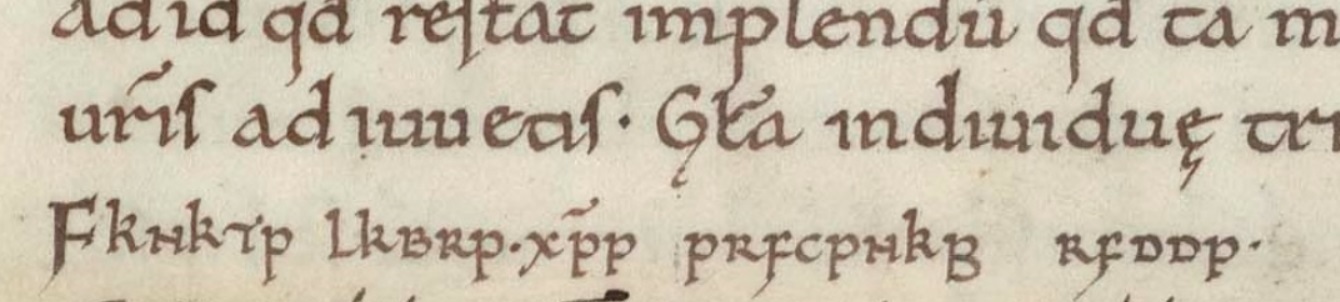 ad id qd restat implendū qd ta m
ur̄is ad iuuetis. Gl̄a indiuiduę tri
FkNkTp LkBRp. xp̄p pRFCpNkB RFDDp.